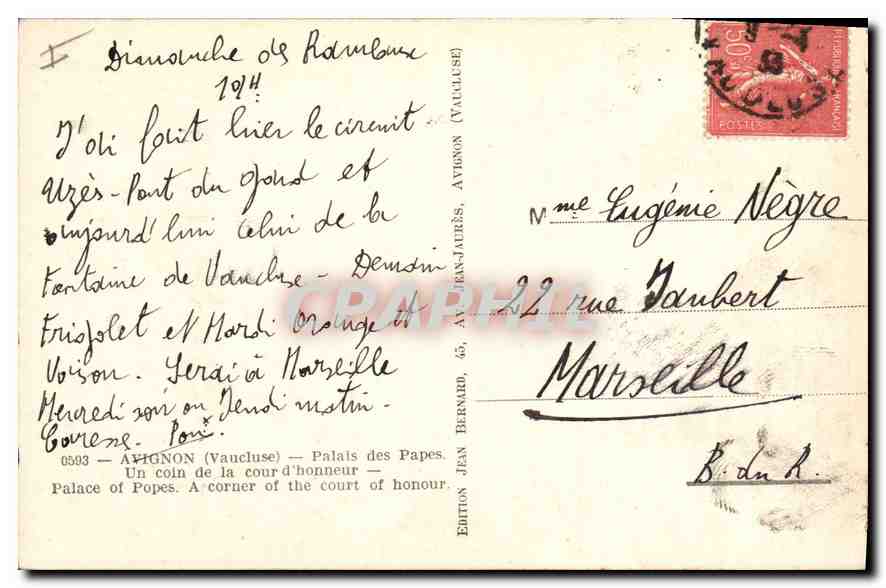 Dimanche des Rameaux
J'ai fait hier le circuit
Uzès - Pont du Gard et
aujourd'hui celui de la
Fontaine de Vaucluse - Demain
Frigolet et Mardi Orange et
Vaison. Serai à Marseille
Mercredi soir ou Jeudi matin -
Caresse.
0593 — AVIGNON (Vaucluse) — Palais des Papes.
Un coin de la cour d'honneur —
Palace of Popes. A corner of the court of honour.
EDITION JEAN BERNARD, 45, AV. JEAN-JAURÈS, AVIGNON (VAUCLUSE)
50c
POSTES
RÉPUBLIQUE FRANÇAISE
Mme Eugénie Nègre
22 rue Jaubert
Marseille
B. du R.
CPARHIL